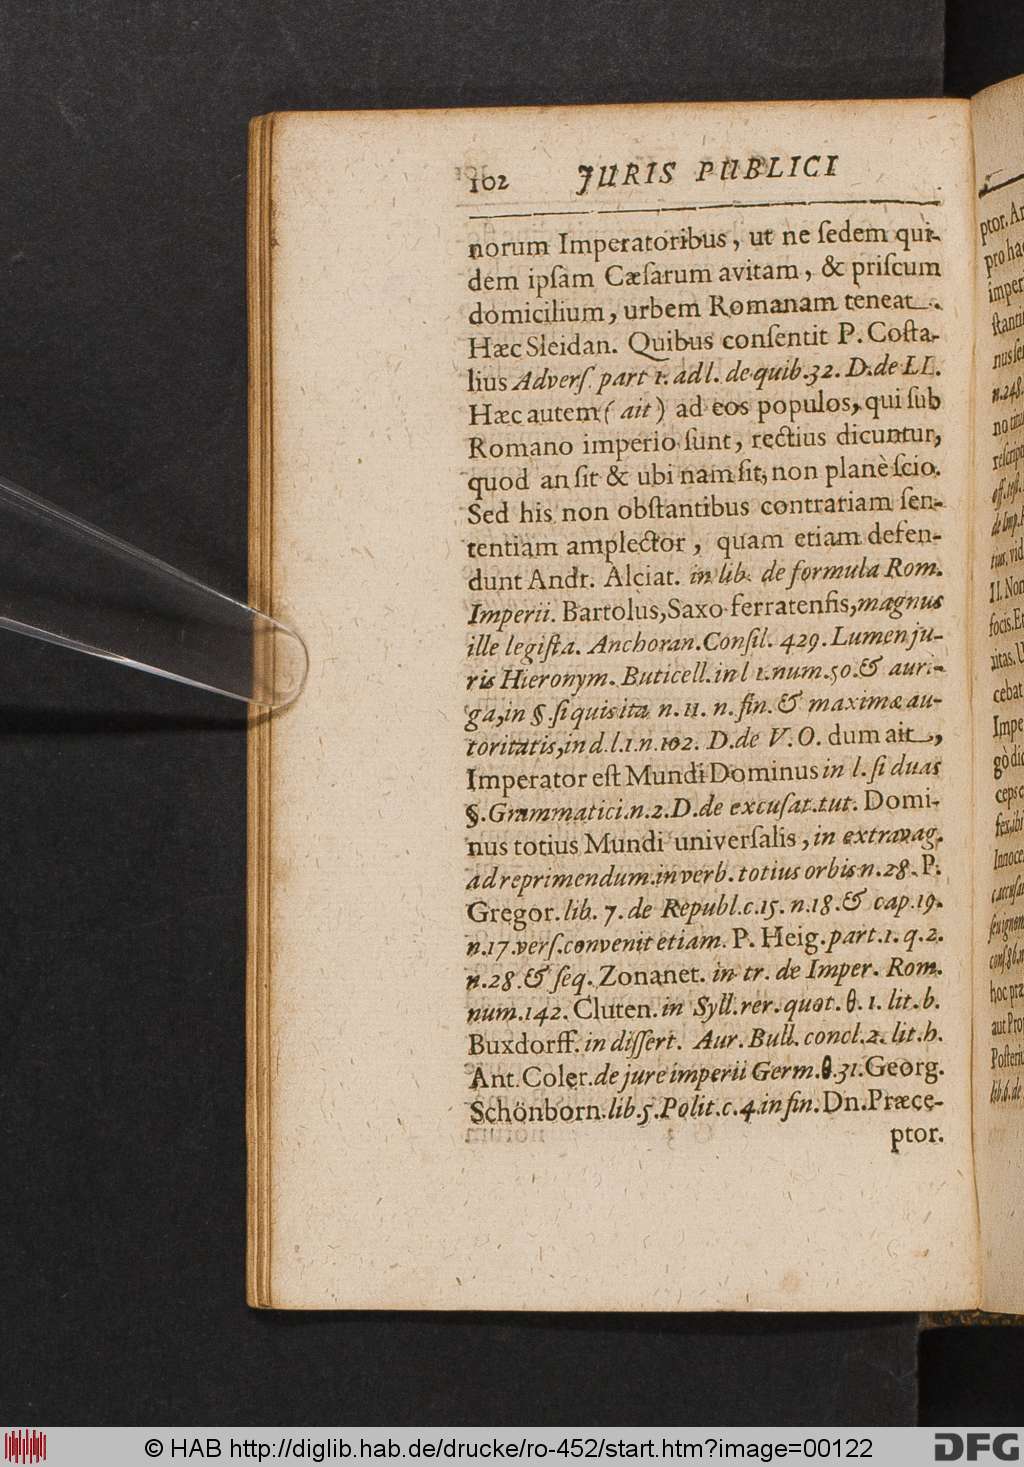 102 JURIS PUBLICI
norum Imperatoribus, ut ne ſedem qui-
dem ipſam Cæſarum avitam, & priſcum
domicilium, urbem Romanam teneat.
Hæc Sleidan. Quibus conſentit P. Coſta-
lius Adverſ. part 1. ad l. de quib. 32. D. de LL.
Hæc autem (ait) ad eos populos, qui ſub
Romano imperio ſunt, rectius dicuntur,
quod an ſit & ubi nam ſit, non planè ſcio.
Sed his non obſtantibus contrariam ſen-
tentiam amplector, quam etiam defen-
dunt Andr. Alciat. in lib. de formula Rom.
Imperii. Bartolus, Saxo ferratenſis, magnus
ille legiſta. Anchoran. Conſil. 429. Lumen ju-
ris Hieronym. Buticell. in l 1. num. 50. & auri-
ga, in §. ſi quis ita n. 11. n. fin. & maximæ au-
toritatis, in d. l. 1. n. 102. D. de V. O. dum ait,
Imperator eſt Mundi Dominus in l. ſi duas
§. Grammatici. n. 2. D. de excuſat. tut. Domi-
nus totius Mundi univerſalis, in extravag.
ad reprimendum. in verb. totius orbis n. 28. P.
Gregor. lib. 7. de Republ. c. 15. n. 18. & cap. 19.
n. 17. verſ. convenit etiam. P. Heig. part. 1. q. 2.
n. 28. & ſeq. Zonanet. in tr. de Imper. Rom.
num. 142. Cluten. in Syll. rer. quot. θ. 1. lit. b.
Buxdorff. in diſſert. Aur. Bull. concl. 2. lit. h.
Ant. Coler. de jure imperii Germ. θ. 31. Georg.
Schönborn. lib. 5. Polit. c. 4. in fin. Dn. Præce-
ptor.
ptor. An
pro
imper
ſtanti
n. 248.
II. Non
focis. Et
cebat
Impe
gò dic
Innoce
hoc præ
aut Pro
Poſteri
lib. 6. de
© HAB http://diglib.hab.de/drucke/ro-452/start.htm?image=00122
DFG